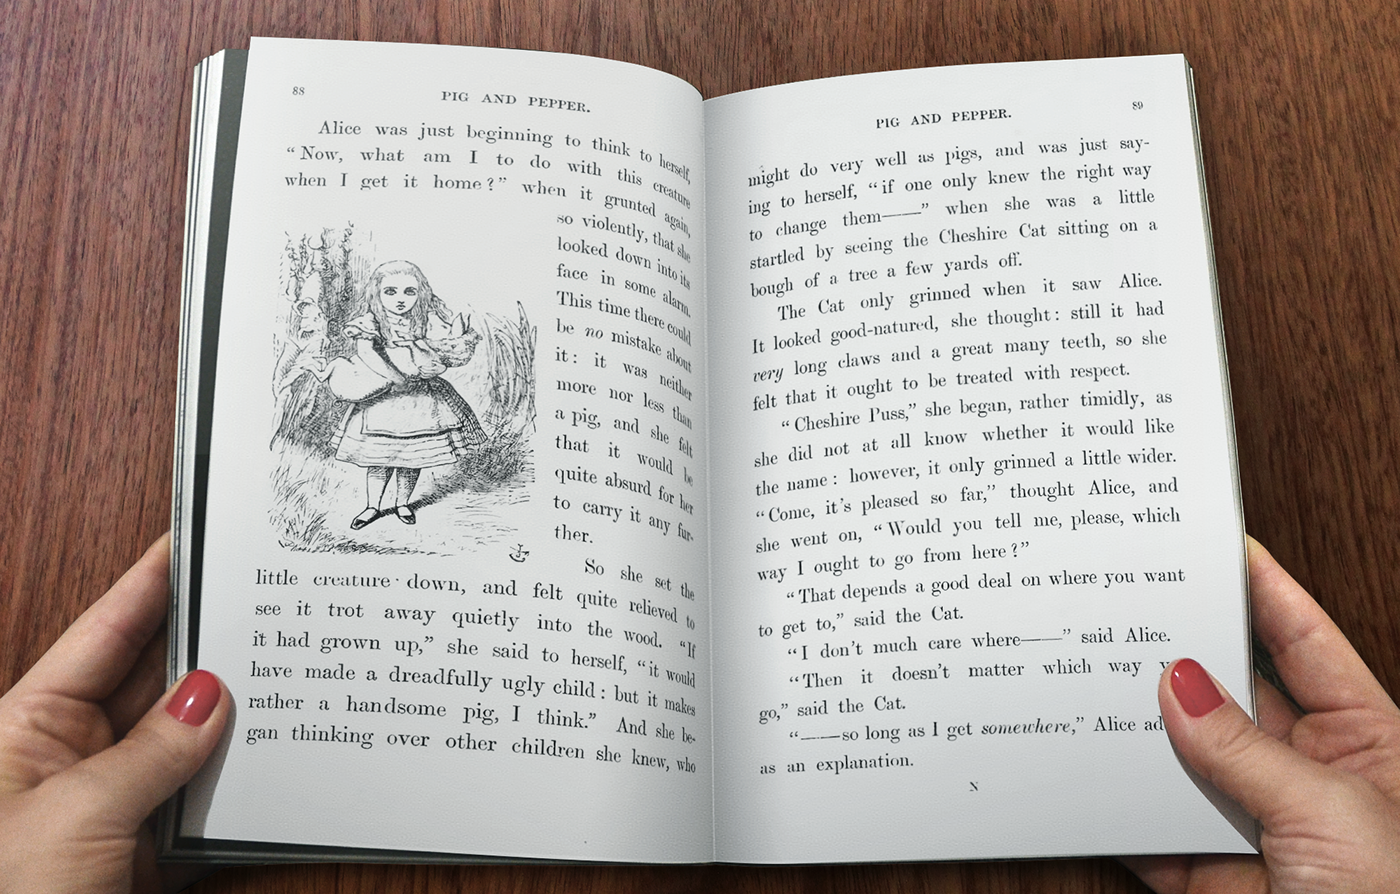 88
PIG AND PEPPER.
Alice was just beginning to think to herself,
“Now, what am I to do with this creature
when I get it home?” when it grunted again,
so violently, that she
looked down into its
face in some alarm.
This time there could
be no mistake about
it: it was neither
more nor less than
a pig, and she felt
that it would be
quite absurd for her
to carry it any fur-
ther.
So she set the
little creature down, and felt quite relieved to
see it trot away quietly into the wood. “If
it had grown up,” she said to herself, “it would
have made a dreadfully ugly child: but it makes
rather a handsome pig, I think.” And she be-
gan thinking over other children she knew, who
PIG AND PEPPER.
89
might do very well as pigs, and was just say-
ing to herself, “if one only knew the right way
to change them——” when she was a little
startled by seeing the Cheshire Cat sitting on a
bough of a tree a few yards off.
The Cat only grinned when it saw Alice.
It looked good-natured, she thought: still it had
very long claws and a great many teeth, so she
felt that it ought to be treated with respect.
“Cheshire Puss,” she began, rather timidly, as
she did not at all know whether it would like
the name: however, it only grinned a little wider.
“Come, it’s pleased so far,” thought Alice, and
she went on, “Would you tell me, please, which
way I ought to go from here?”
“That depends a good deal on where you want
to get to,” said the Cat.
“I don’t much care where——” said Alice.
“Then it doesn’t matter which way
go,” said the Cat.
“——so long as I get somewhere,” Alice ad
as an explanation.
N